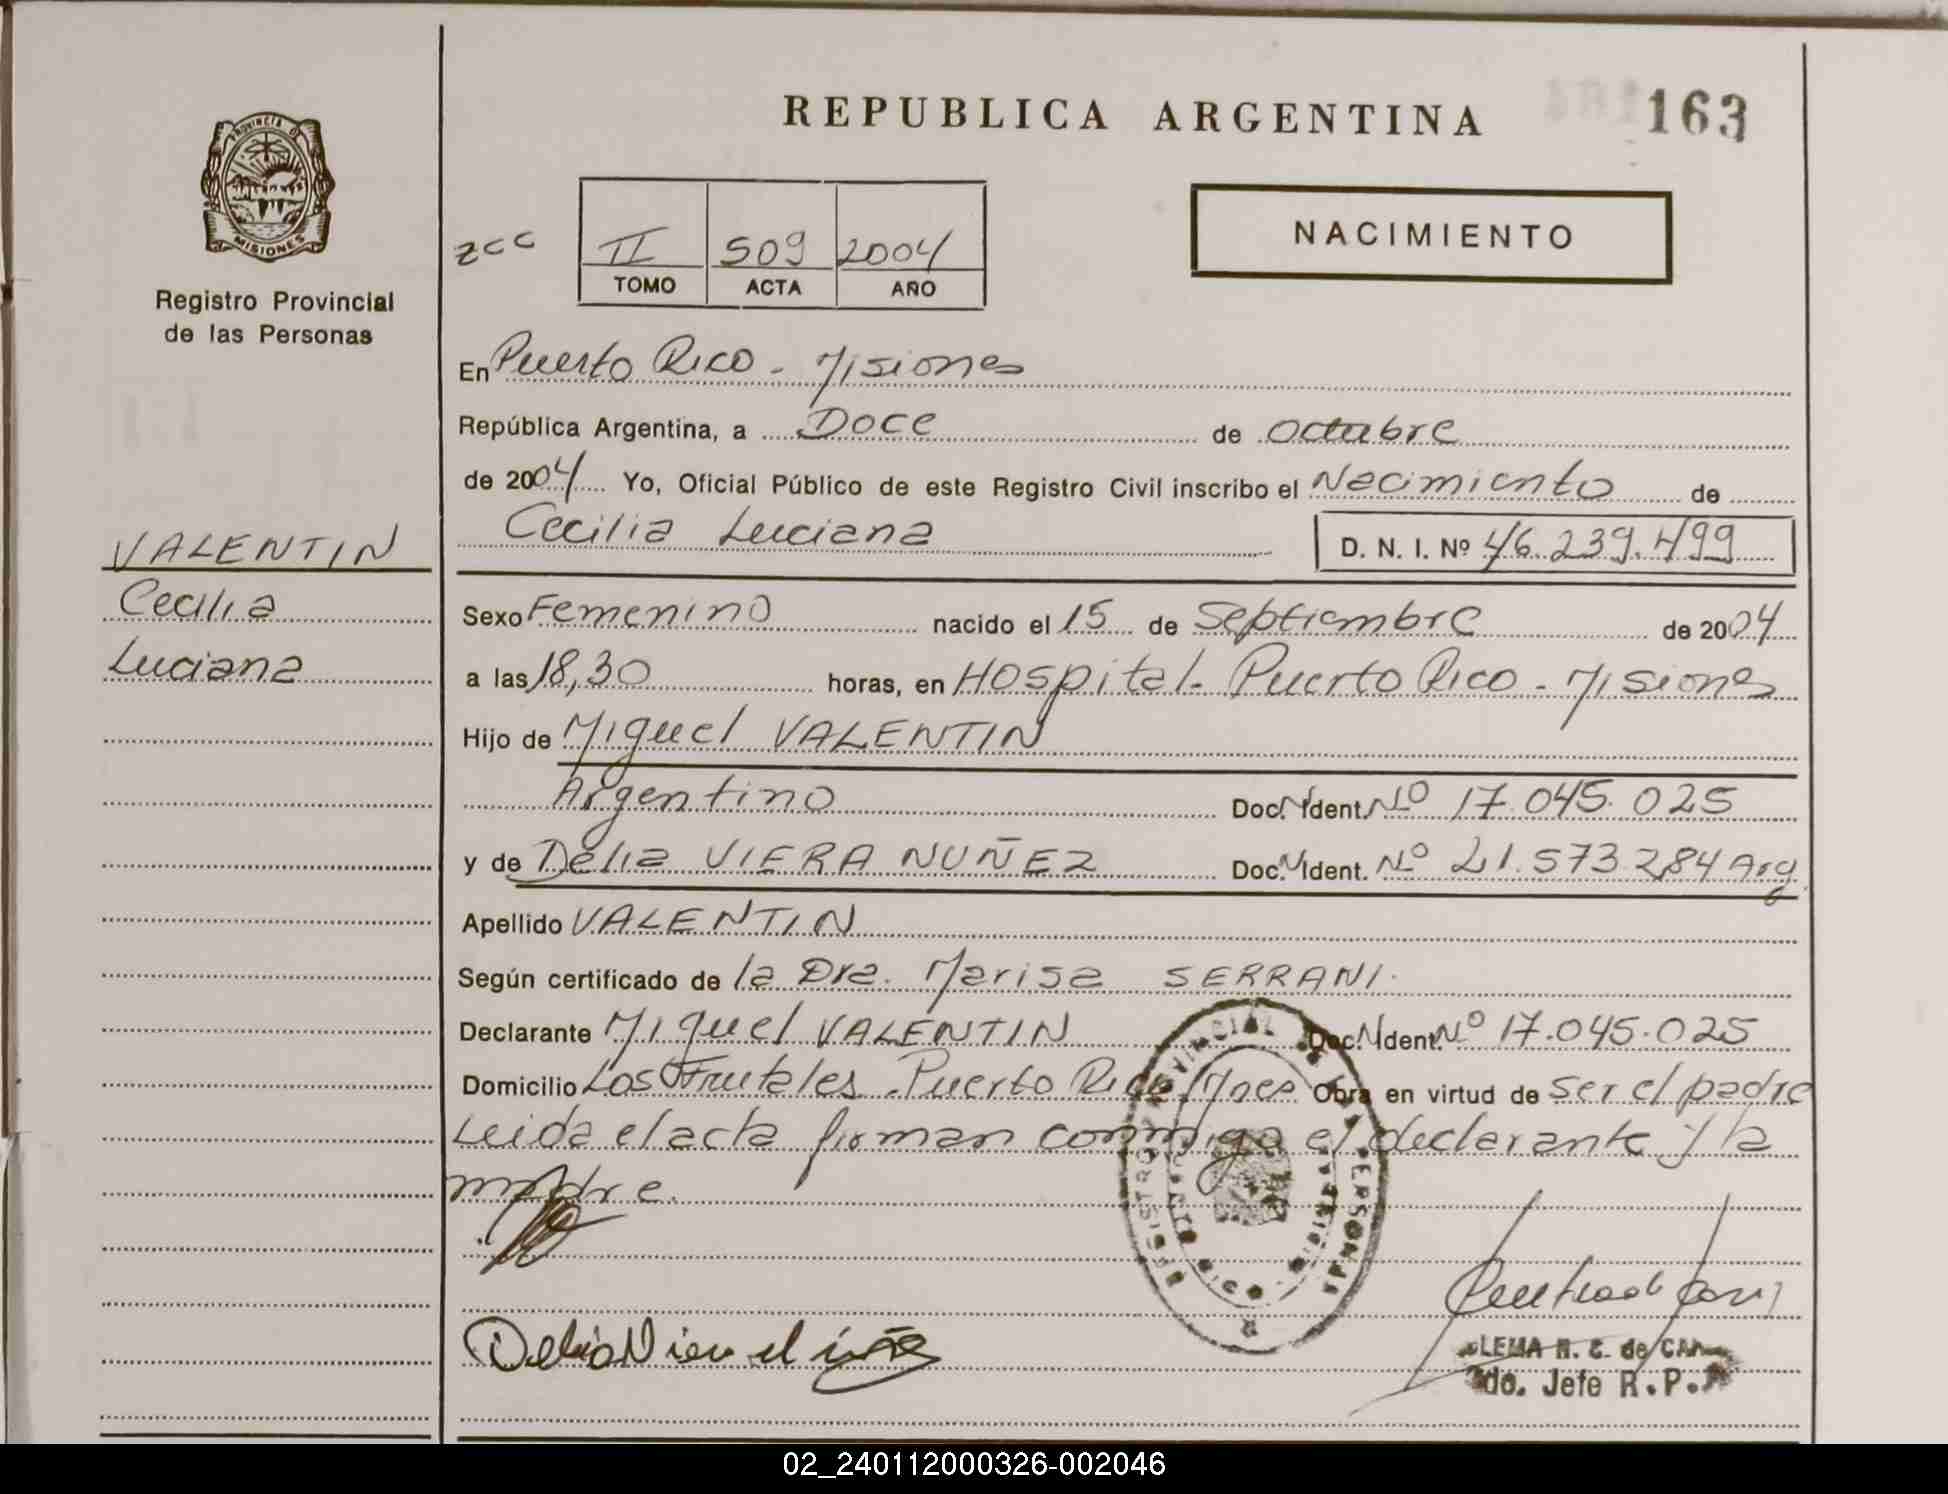 REPUBLICA ARGENTINA
163
PROVINCIA DE
MISIONES
Registro Provincial
de las Personas
zcc
II 509 2004
TOMO ACTA AÑO
NACIMIENTO
En Puerto Rico - Misiones
República Argentina, a Doce de octubre
de 2004 Yo, Oficial Público de este Registro Civil inscribo el Nacimiento de
Cecilia Luciana D. N. I. Nº 46.239.499
VALENTIN
Cecilia
Luciana
Sexo Femenino nacido el 15 de Septiembre de 2004
a las 18,30 horas, en Hospital - Puerto Rico - Misiones
Hijo de Miguel VALENTIN
Argentino Doc. N Ident. Nº 17.045.025
y de Delia VIERA NUÑEZ Doc. N Ident. Nº 21.573.284 Arg.
Apellido VALENTIN
Según certificado de la Dra. Marisa SERRANI.
Declarante Miguel VALENTIN Doc. N Ident. Nº 17.045.025
Domicilio Los Frutales - Puerto Rico, Mnes Obra en virtud de ser el padre
Leida el acta firman conmigo el declarante y la
madre.
REGISTRO PROVINCIAL DE LAS PERSONAS
LEMA N. C. de
do. Jefe R.P.
02_240112000326-002046